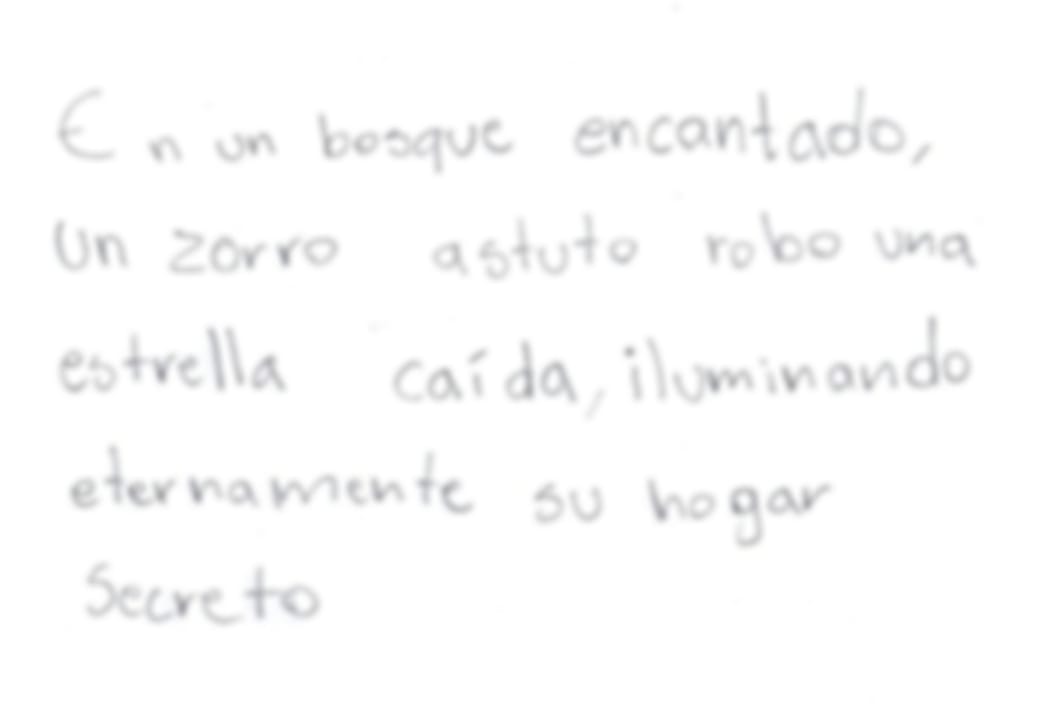 En un bosque encantado,
Un zorro astuto robo una
estrella caída, iluminando
eternamente su hogar
Secreto